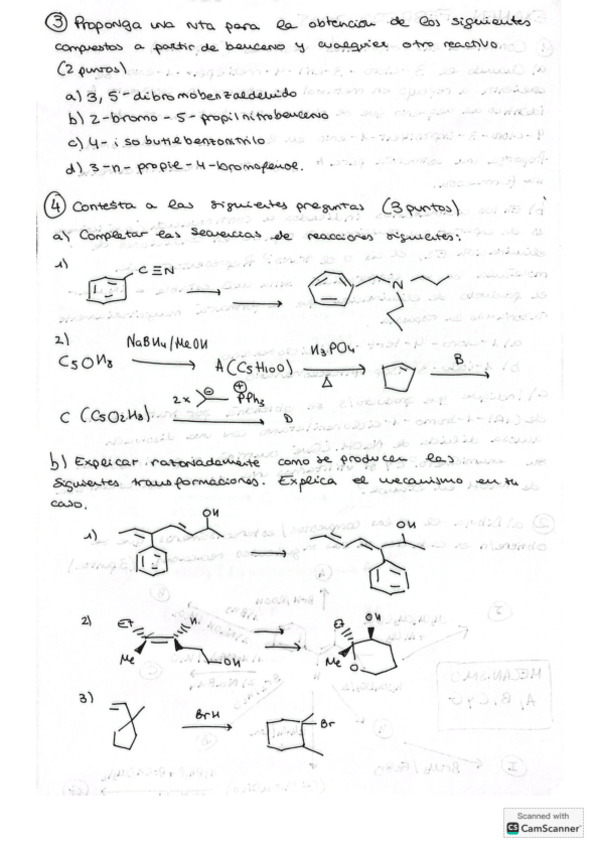 ③ Proponga una ruta para la obtención de los siguientes
compuestos a partir de benceno y cualquier otro reactivo.
(2 puntos)
a) 3,5-dibromobenzaldehido
b) 2-bromo-5-propilnitrobenceno
c) 4-isobutilbenzonitrilo
d) 3-n-propil-4-bromofenol.
④ Contesta a las siguientes preguntas (3 puntos)
a) Completar las secuencias de reacciones siguientes:
1)
C≡N
N
2)
C5OH8 NaBH4/MeOH A (C5H10O) H3PO4 Δ B
C (C5O2H8) 2x ⊖ ⊕ PPh3 D
b) Explicar razonadamente como se producen las
siguientes transformaciones. Explica el mecanismo en su
caso.
1) OH OH
2) Et H Me OH Et OH Me O
3) BrH Br
Scanned with
CS CamScanner